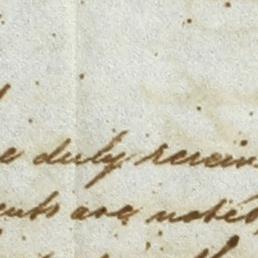 e duly receiv
ents are noted